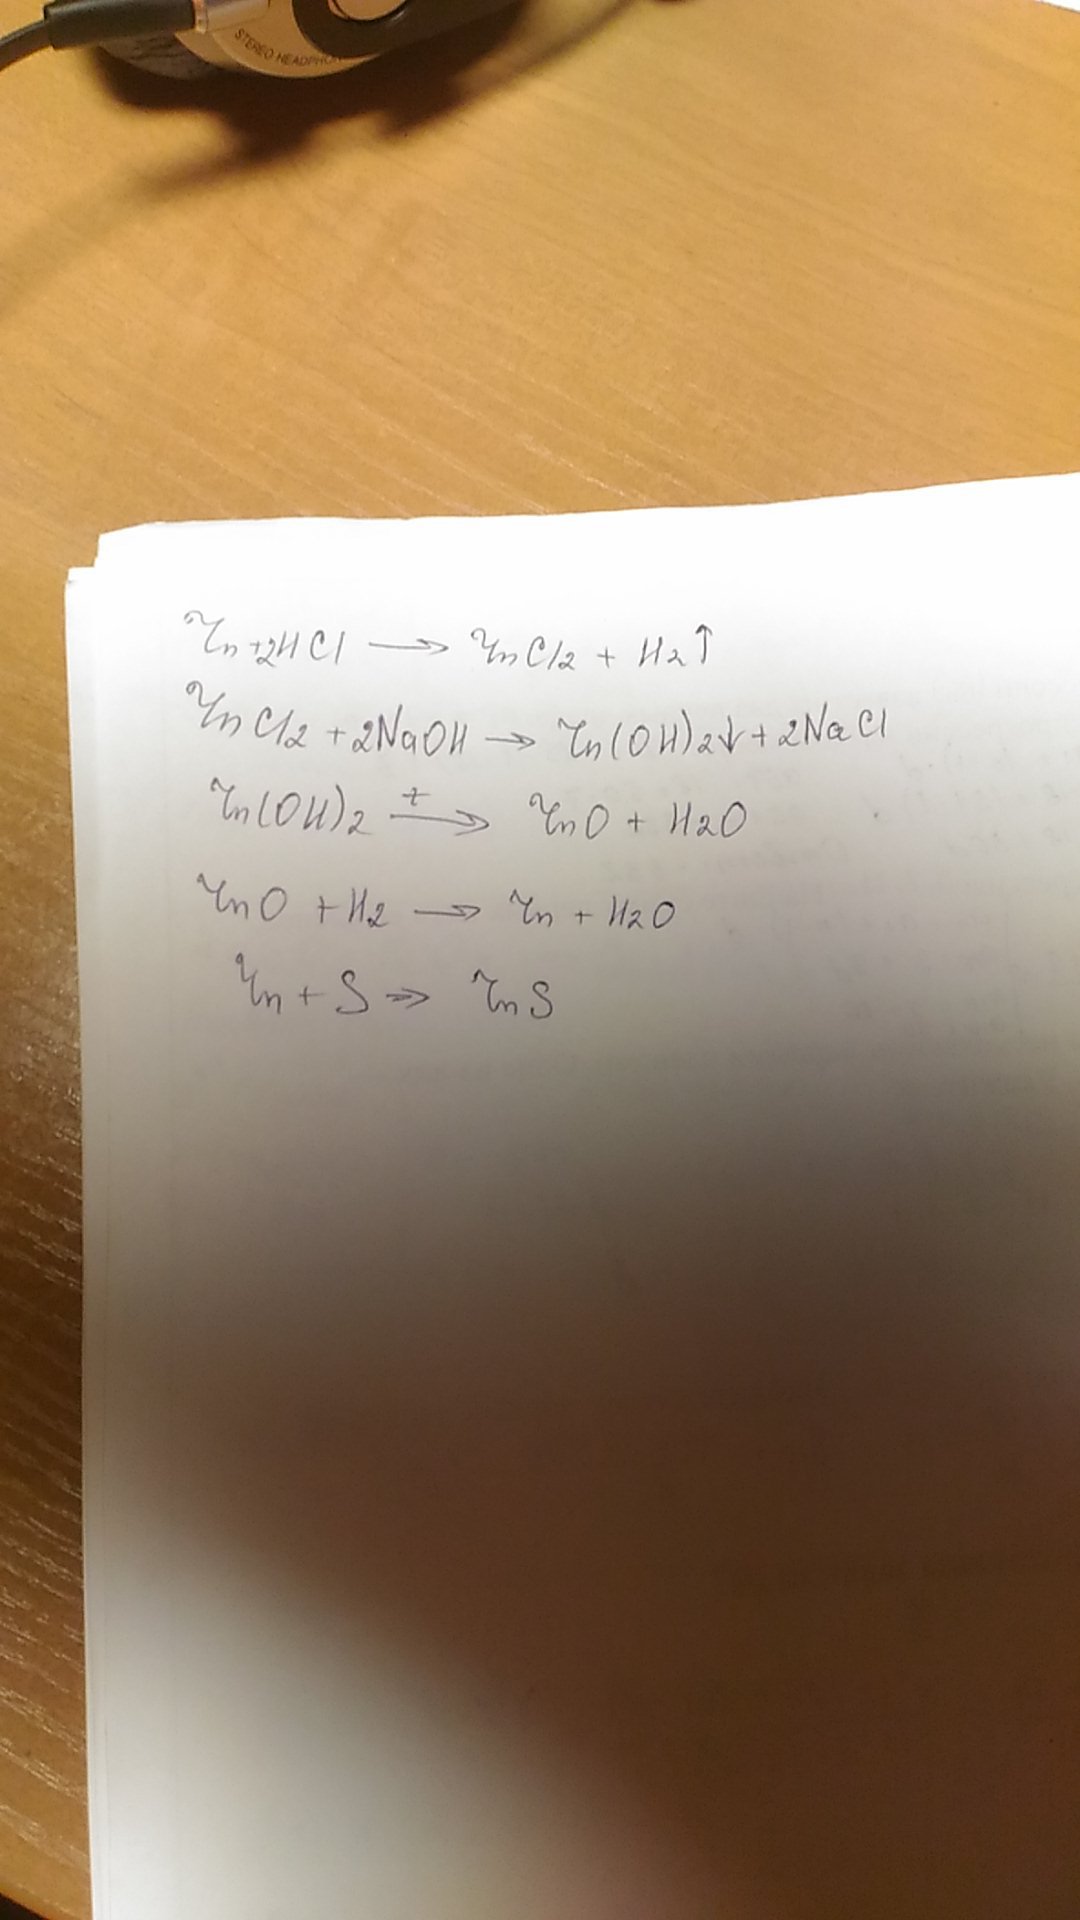 STEREO HEADPHON
Zn+2HCl → ZnCl2 + H2↑
ZnCl2 +2NaOH → Zn(OH)2↓+2NaCl
Zn(OH)2 t→ ZnO + H2O
ZnO + H2 → Zn + H2O
Zn + S → ZnS